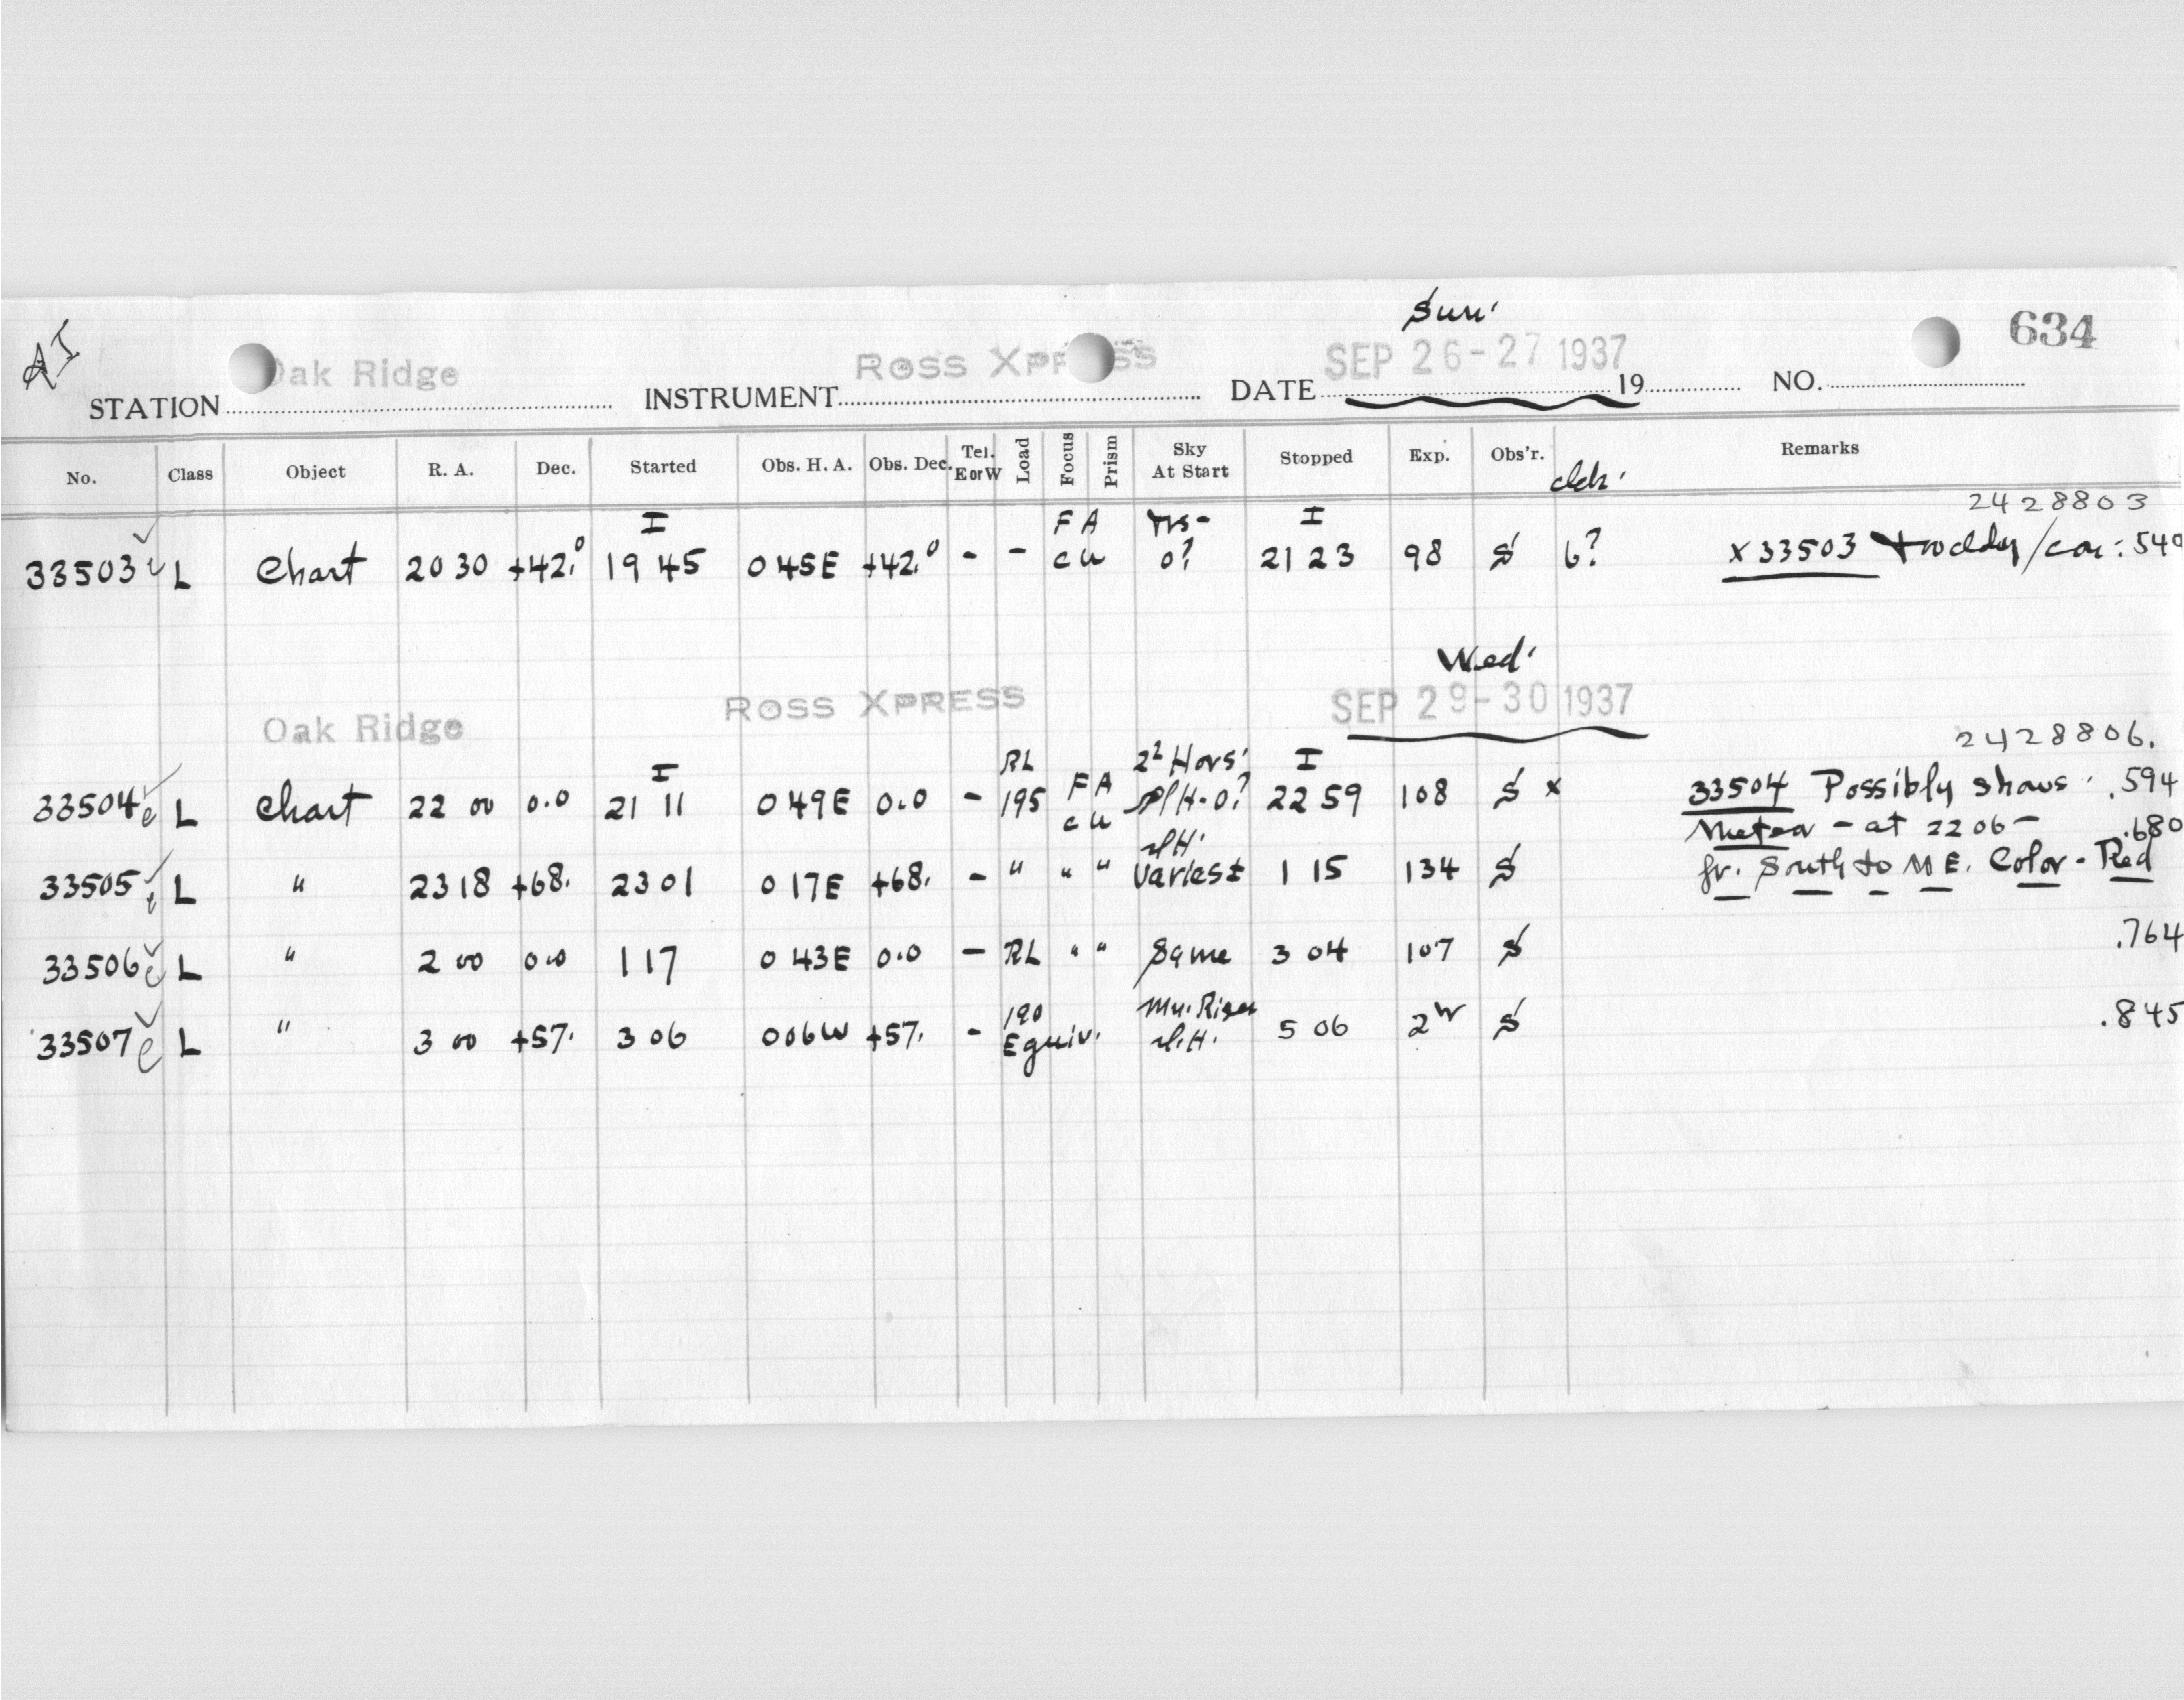 AI
Sun.
634
STATION Oak Ridge INSTRUMENT ROSS XPRESS DATE SEP 26-27 1937 19 NO.
No. Class Object R. A. Dec. Started Obs. H. A. Obs. Dec. Tel. E or W Load Focus Prism Sky At Start Stopped Exp. Obs'r. Remarks
2428803
33503 L Chart 20 30 +42.0 I 19 45 0 45E +42.0 - - FA cu 0? I 21 23 98 S 6? x 33503 .540
Wed.
Oak Ridge ROSS XPRESS SEP 29-30 1937
2428806.
33504 e L Chart 22 00 0.0 I 21 11 0 49E 0.0 - RL 195 FA cu I 22 59 108 S x 33504 Possibly shows .594
Meteor - at 22 06 - .680
33505 L " 23 18 +68. 23 01 0 17E +68. - " " " Varies± 1 15 134 S fr. South to NE. Color - Red
33506 e L " 2 00 0.0 1 17 0 43E 0.0 - RL " " Same 3 04 107 S .764
33507 e L " 3 00 +57. 3 06 0 06W +57. - 190 Equiv. 5 06 S .845